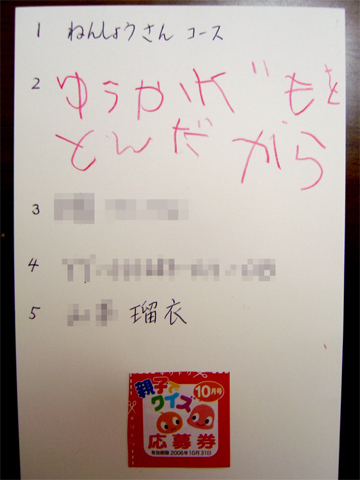 1 ねんしょうさん コース
2 ゆうかれ゛もを
とんだから
3
4
5 瑠衣
親子で
クイズ
10月号
応募券
有効期限 2006年10月31日